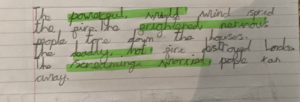 The powerful, swift wind spred
the fire. the frightened, nervous
people tore down the houses.
the deadly, hot fire destroyed London
the screaming, worried, people ran
away.